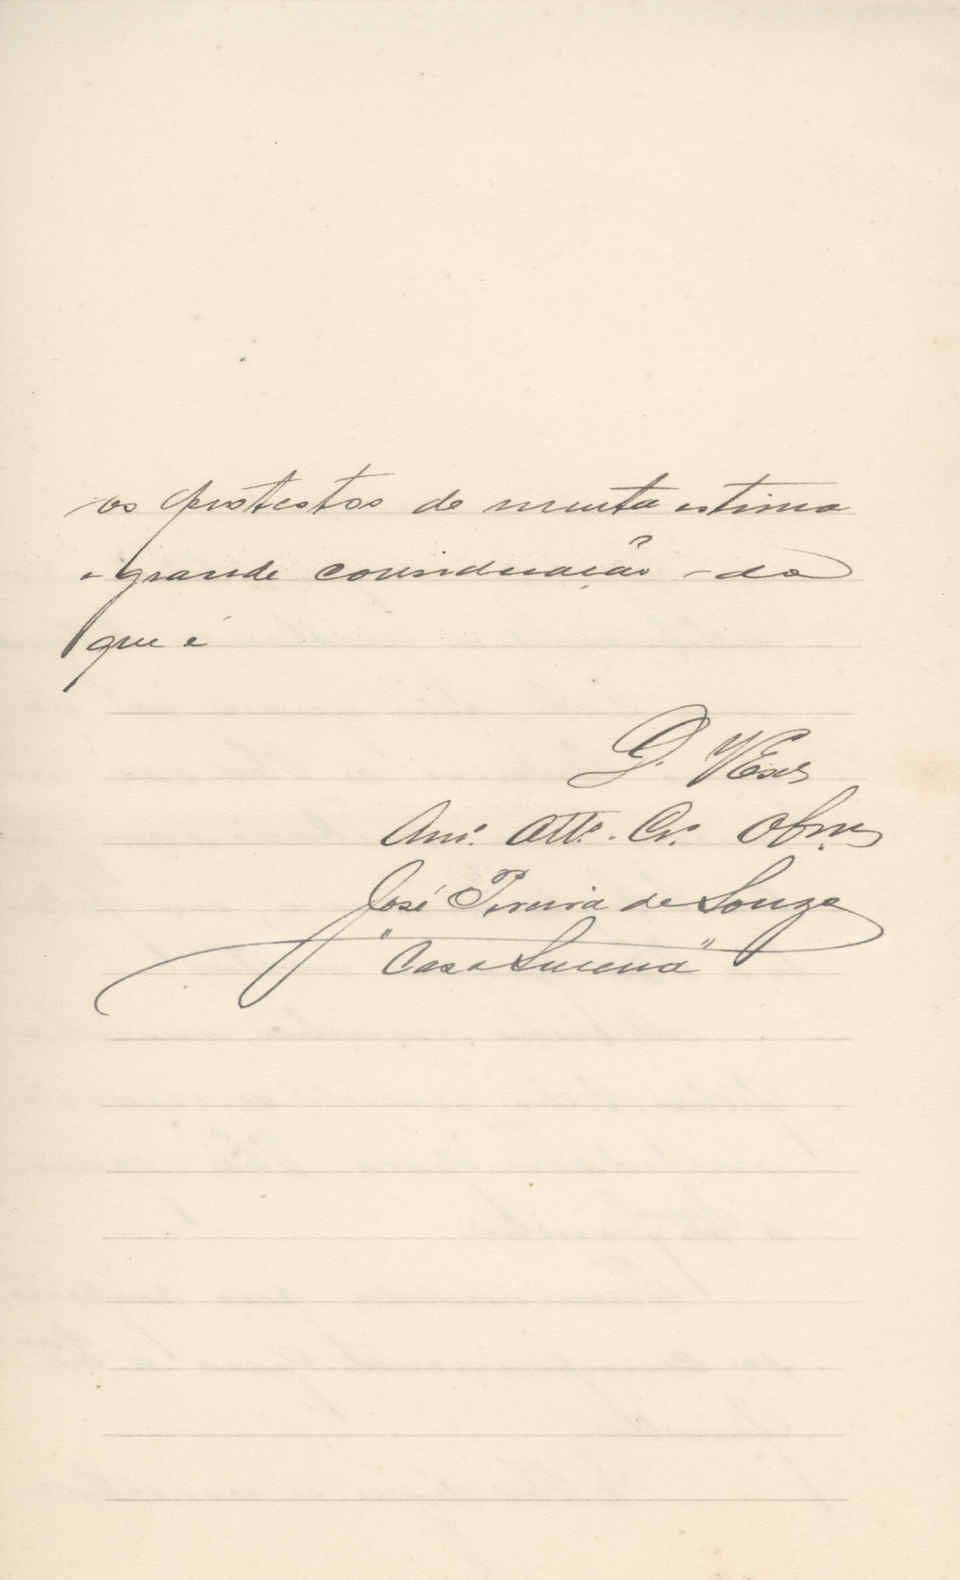 os protestos de muita estima
e grande consideração do
que é
D. VExa
Amo. Atto. Cro. Obrmo
José Pereira de Souza
"Casa Lucena"